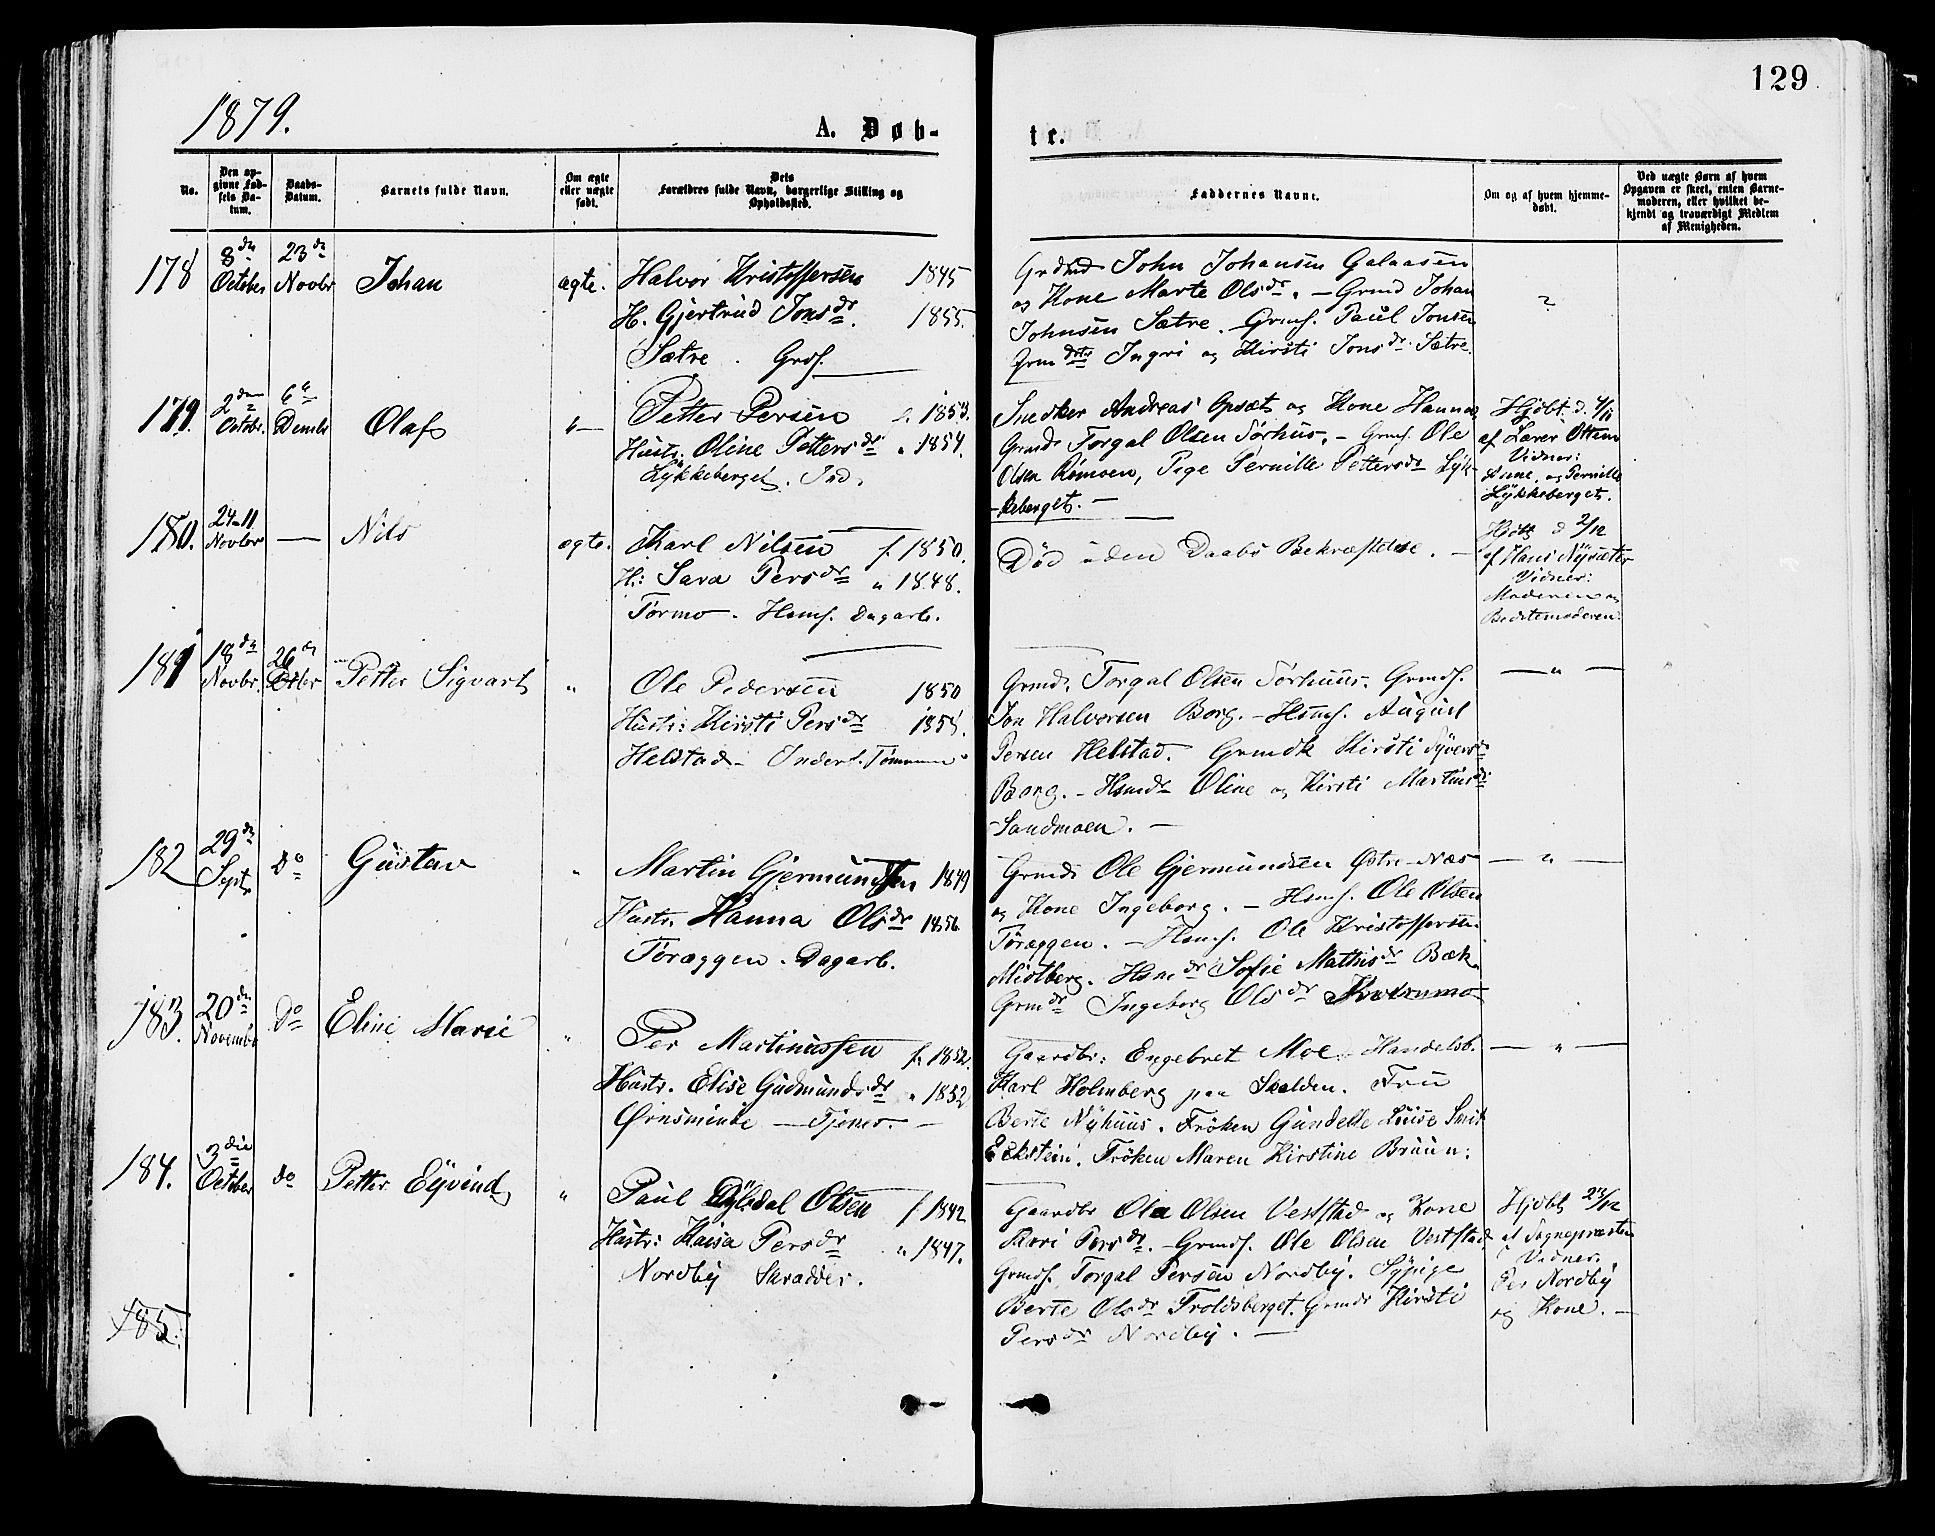 129
1879.
A. Døb-
te.
No.
Den op-
givne Fød-
sels Da-
tum.
Daabs-
Datum.
Barnets fulde Navn.
Om ægte
eller uægte
født.
Dets
Forældres fulde Navn, borgerlige Stilling og
Opholdssted.
Faddernes Navne.
Om og af hvem hjemme-
døbt.
Ved uægte Børn af hvem
Opgaven er skeet, enten Barne-
moderen, eller hvilket be-
kjendt og troværdigt Medlem
af Menigheden.
178
8de
October
23de
Novbr
Johan
ægte.
Halvor Kristoffersen 1845
H. Gjertrud Jonsdr. 1855.
Sætre. Grdf.
John Johansen Galaasen
og Kone Marte Olsdr. – Grmd Johan
Johnsen Sætre. – Grmf. Paul Jonsen
Ingri og Kirsti Jonsdr. Sætre.
179.
2den
Octobr.
6te
Decmbr
Olaf
"–
Petter Persen f. 1853.
Hustr. Oline Pettersdr " 1854.
Lykkeberget. Ind.
Snedker Andreas Opsæt og Kone Hanna
Grmd. Torgal Olsen Tørhus. – Grmf. Ole
Olsen Rømoen, Pige Pernille Pettersdr Lyk-
-keberget. –
Hjdbt. d. 4/11
af Lærer Ottem
Vidner:
Anne og Pernille
Lykkeberget.
180.
24-11
Novbr
—
Nils
ægte.
Karl Nilsen f. 1850.
H: Sara Persdr " 1848.
Tørmo. Hsmf. Dagarb.
Død uden Daabs Bekræftelse. –
Hjdbt d 2/12
af Hans Nysæter
Vidner:
Moderen og
Bedstemoderen
181
18de
Novbr.
26de
Petter Sigvart
"
Ole Pedersen 1850
Hustr: Kirsti Persdr 1855.
Helstad – Inderst. Tømmerm
Grmd. Torgal Olsen Tørhuus. Grmdf.
Jon Halvorsen Borg. – Hsmf. August
Persen Helstad. Grmdk Kirsti Syversdr
Borg. – Hsmdr Oline og Kirsti Martinsdr
Sandmoen. –
— " —
182
29de
Septr
Do
Gustav
"
Martin Gjermundsen 1849
Hustr. Hanna Olsdr 1856.
Tøraggen. Dagarb.
Grmd. Ole Gjermundsen Østre-Næs
og Kone Ingeborg. – Hsmf. Ole Olsen
Tøraggen. – Hsmf. Ole Kristoffersen
Midtberg. Hsmdr Sofie Mathisdr Bæk.
Grmdr Ingeborg Olsdr
— " —
183.
20de
Novembr
Do
Eline Marie
"
Per Martinussen f. 1852.
Hustr. Elise Gudmundsdr " 1852
Ørnsminde — Tjener. –
Gaardbr: Engebret Moe. Handelsb.
Karl Holmberg paa Skalden. Fru
Berte Nyhuus. Frøken Gundelle Louise Smit
Eckstein. Frøken Maren Kirstine Bruun.
— " —
184.
3die
October
do
Petter Eyvind
"
Paul Dylsdal Olsen f 1842
Hustr: Kaisa Persdr " 1847.
Nordby Skrædder.
Gaardbr Ole Olsen Veststad og Kone
Kari Persdr. – Grmdf. Ole Olsen Veststad
Grmdf. Torgal Persen Nordby. Sypige
Berte Olsdr Troldsberget. Grmdr Kirsti
Persdr Nordby. —
Hjdbt 23/12
af Sognepræsten
Vidner.
Per Nordby
og Kone. –
185.